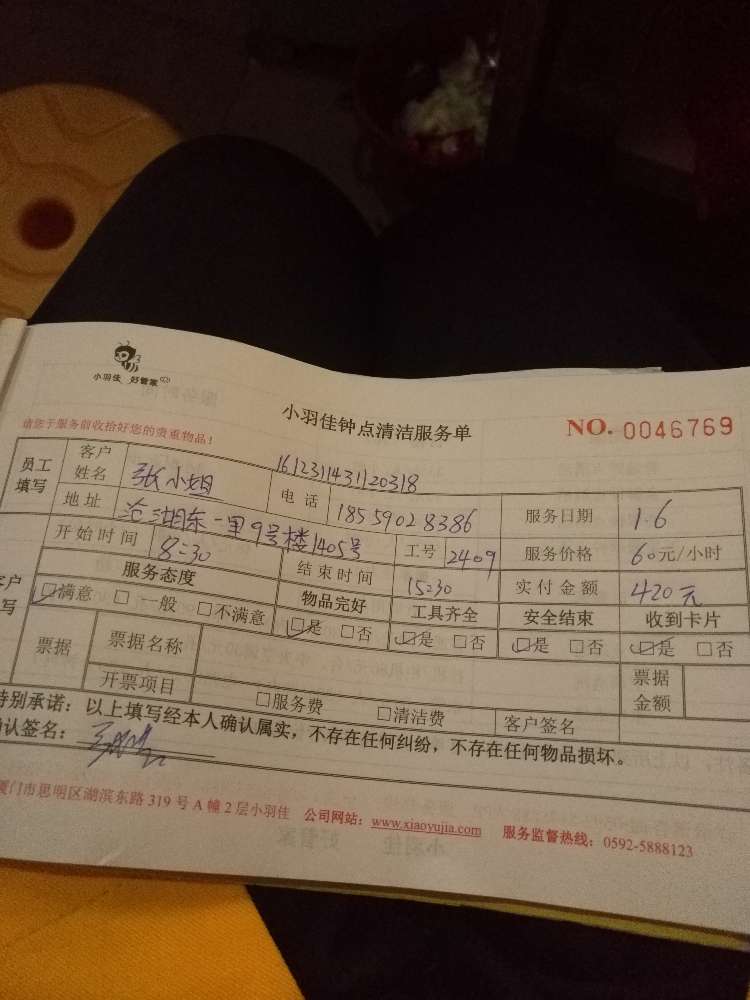 小羽佳 好管家
小羽佳钟点清洁服务单
NO. 0046769
请您于服务前收拾好您的贵重物品!
1612311431120318
员工填写 客户姓名 张小姐 电话 18559028386 服务日期 1.6
地址 沧湖东一里9号楼1405号 工号 2409 服务价格 60元/小时
开始时间 8:30 结束时间 15:30 实付金额 420元
客户填写 服务态度 物品完好 工具齐全 安全结束 收到卡片
满意 一般 不满意 是 否 是 否 是 否 是 否
票据 票据名称 票据金额
开票项目 服务费 清洁费 客户签名
特别承诺:以上填写经本人确认属实,不存在任何纠纷,不存在任何物品损坏。
确认签名:
厦门市思明区湖滨东路319号A幢2层小羽佳 公司网站:www.xiaoyujia.com 服务监督热线:0592-5888123